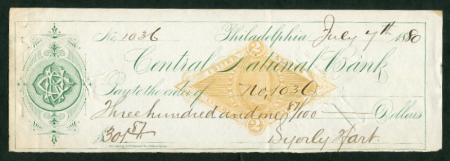 No. 1036 Philadelphia, July 7th 1880
Central National Bank
Pay to the order of No, 1036
Three hundred and one 87/100 Dollars
$301 87
Hart